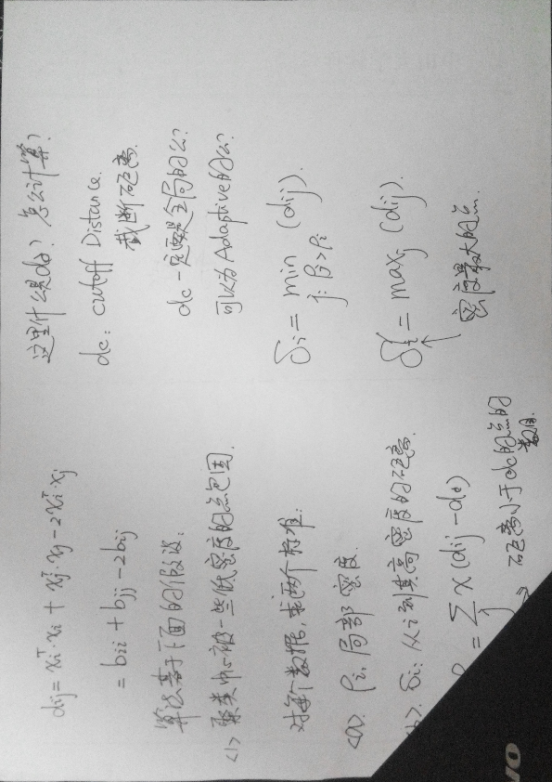 dij = xiᵀ·xi + xjᵀ·xj - 2xiᵀ·xj
= bii + bjj - 2bij
算法基于下面的假设:
<1> 聚类中心被一些低密度的点包围.
对每个数据,求两个标准:
<a>. ρi, 局部密度.
b>. δi: 从i到其高密度的距离.
= Σj χ(dij - dc)
→ 距离小于dc的点的数目.
这里什么是dc? 怎么计算?
dc: cutoff Distance.
截断距离.
dc一定要是全局的么?
可以为Adaptive的么?
δi = min (dij).
j: ρj>ρi
δi = maxj (dij).
密度最大的点.